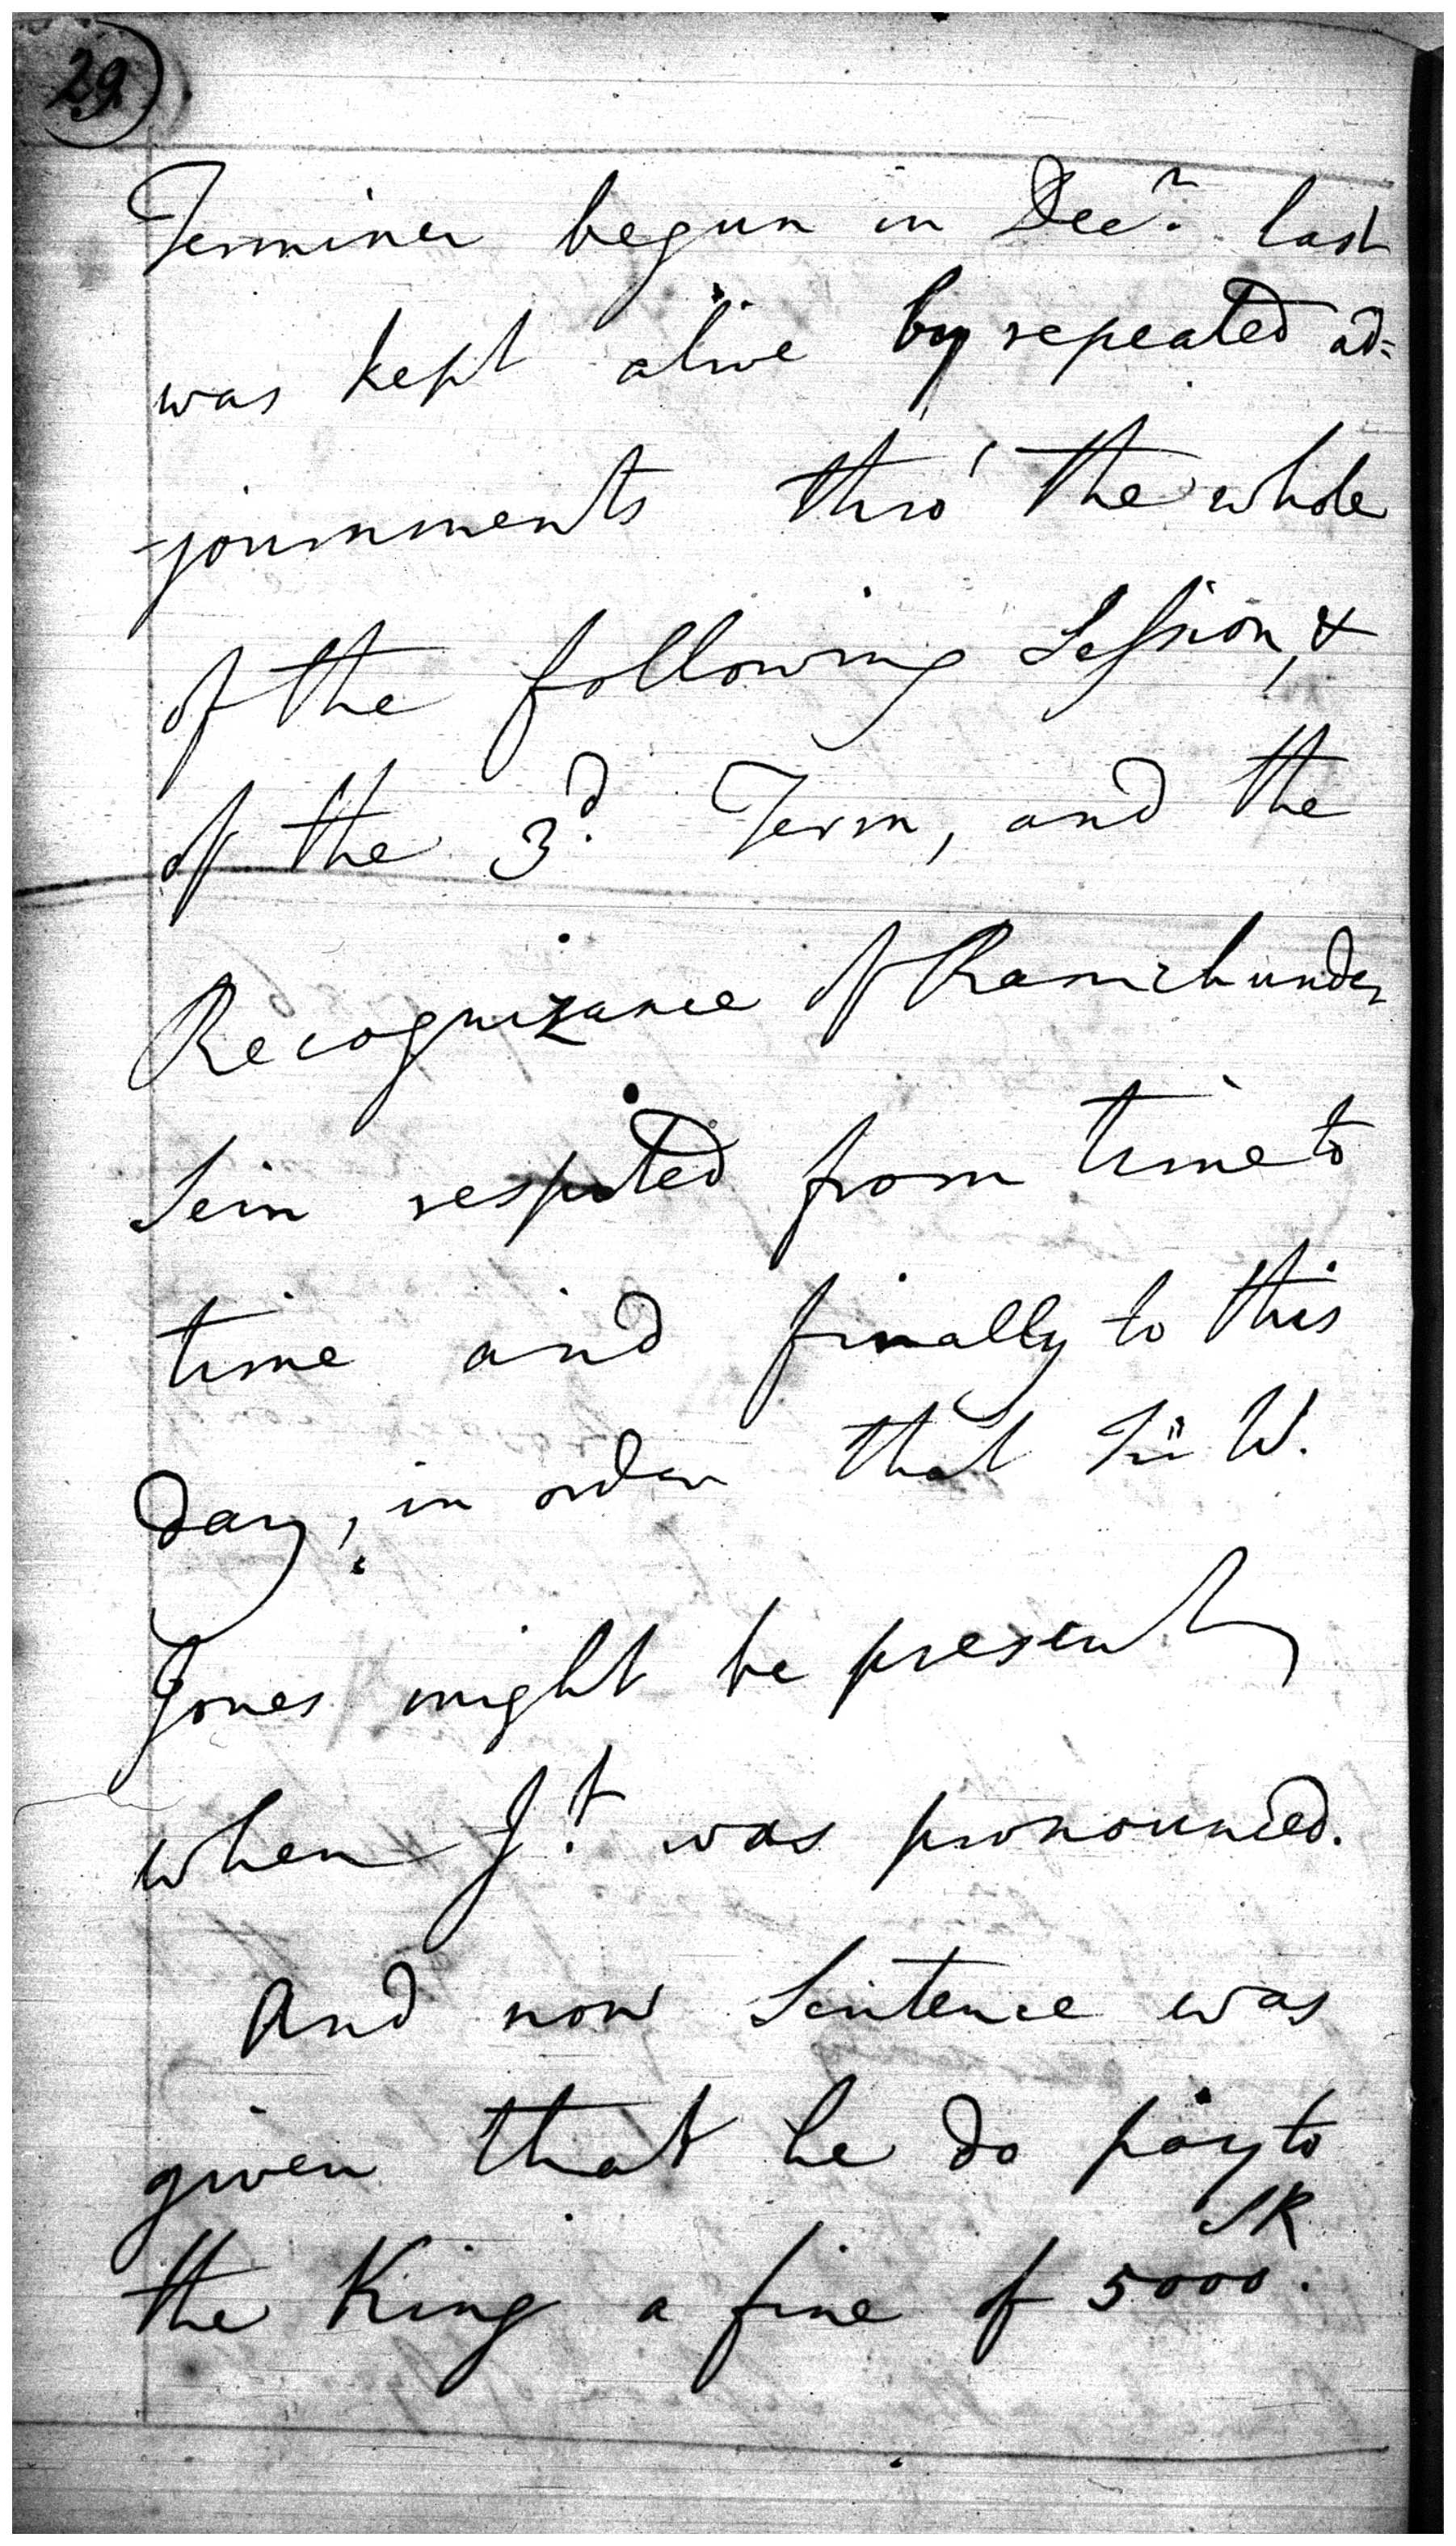 29
Terminer begun in Decr. last
was kept alive by repeated ad=
-journments thro' the whole
of the following Session, &
of the 3d. Term, and the
Recognizance of Ramchunder
Sein respited from time to
time and finally to this
day, in order that Sir W.
Jones might be present,
when Jt. was pronounced.
And now Sentence was
given that he do pay to
the King a fine of 5000 SR.